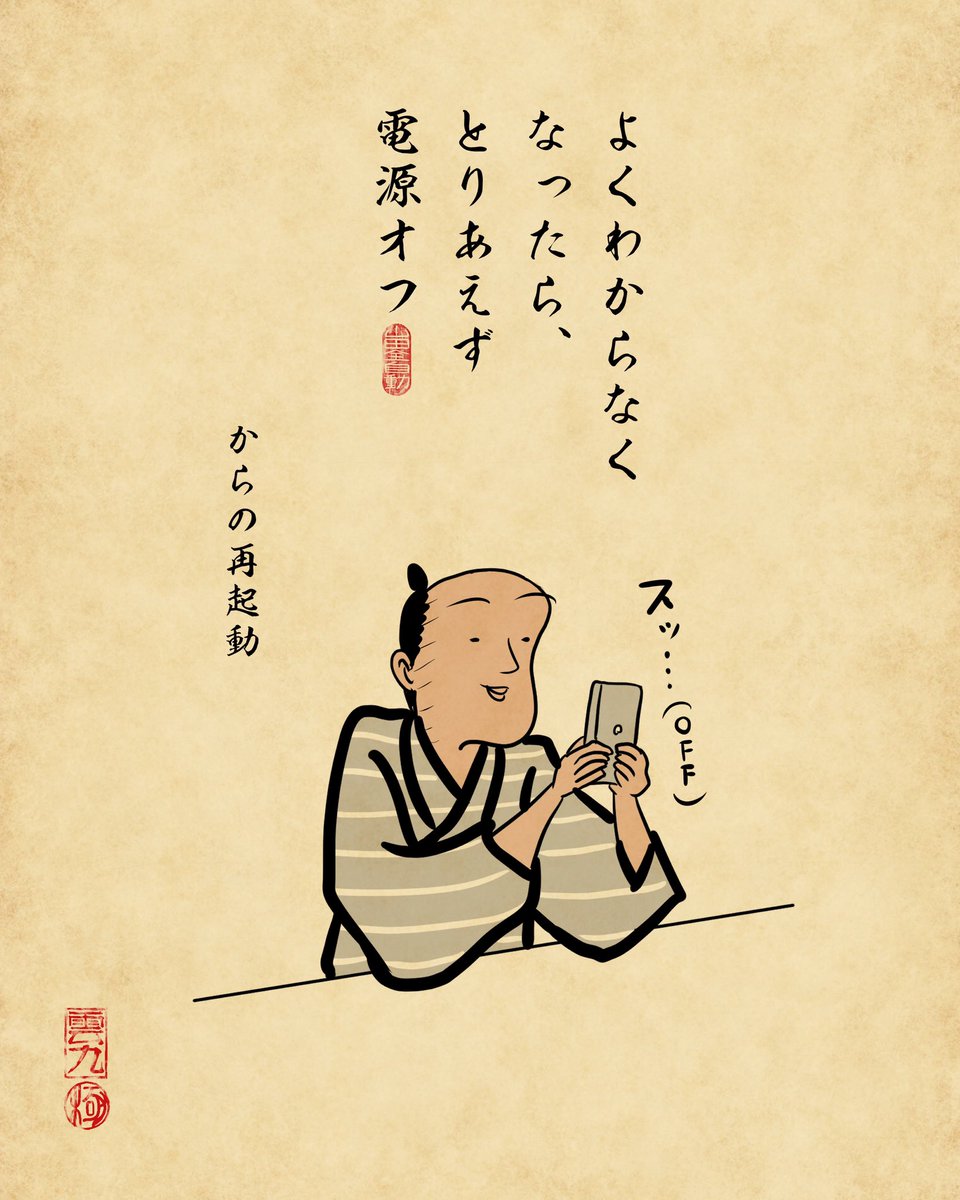 よくわからなく
なったら、
とりあえず
電源オフ
からの再起動
スッ…(OFF)